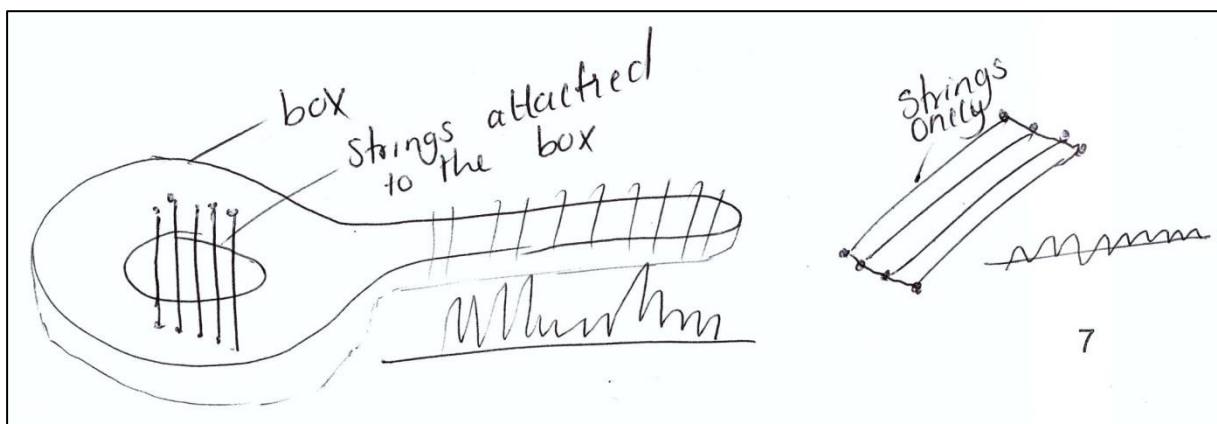 box
strings attached
to the box
strings
only
7